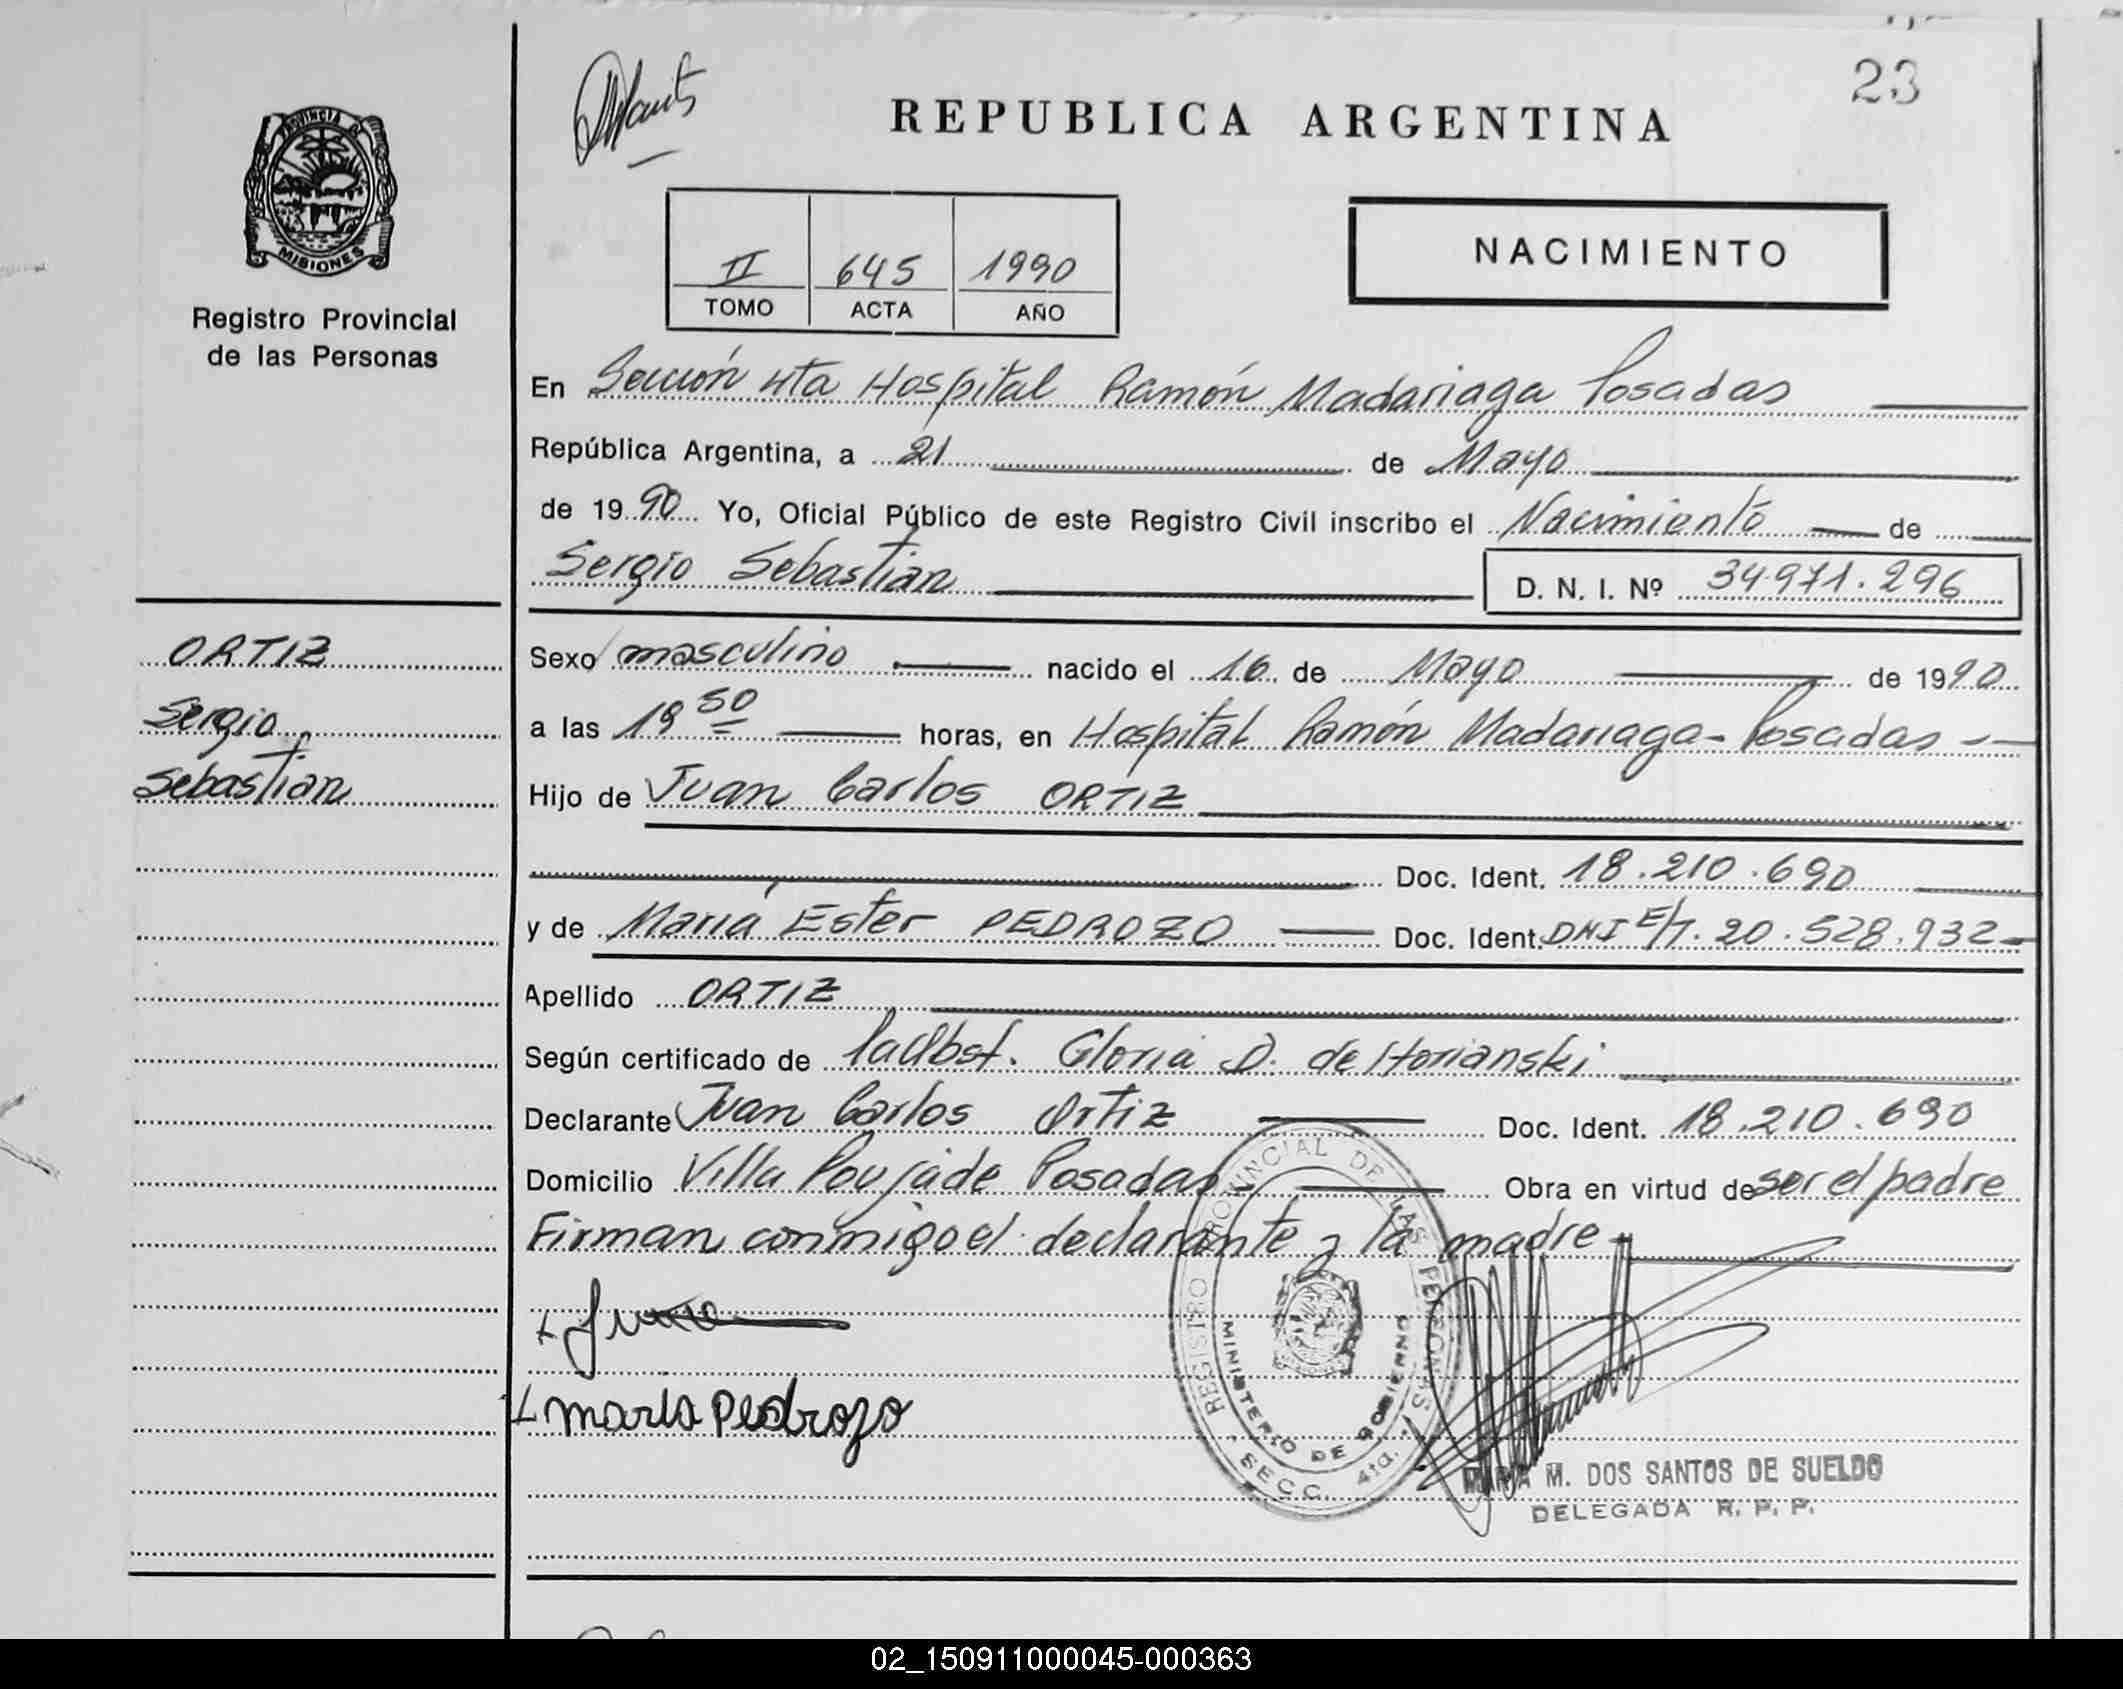 23
REPUBLICA ARGENTINA
PROVINCIA DE
MISIONES
Registro Provincial
de las Personas
II 645 1990
TOMO ACTA AÑO
NACIMIENTO
En Sección 4ta Hospital Ramón Madariaga Posadas
República Argentina, a 21 de Mayo
de 1990 Yo, Oficial Público de este Registro Civil inscribo el Nacimiento de
Sergio Sebastián D. N. I. Nº 34971.296
ORTIZ
Sergio
Sebastián
Sexo masculino nacido el 16 de Mayo de 1990
a las 50 horas, en Hospital Ramón Madariaga - Posadas -
Hijo de Juan Carlos ORTIZ
Doc. Ident. 18.210.690
y de María Ester PEDROZO Doc. Ident. DNI E/T. 20.528.932-
Apellido ORTIZ
Según certificado de Gloria D. de
Declarante Juan Carlos Ortiz Doc. Ident. 18.210.690
Domicilio Villa Poujade Posadas Obra en virtud de ser el padre
Firman conmigo el declarante y la madre
maria Pedrozo
REGISTRO PROVINCIAL DE LAS PERSONAS
MINISTERIO DE GOBIERNO
SECC. 4ta.
MARIA M. DOS SANTOS DE SUELDO
DELEGADA R. P. P.
02_150911000045-000363